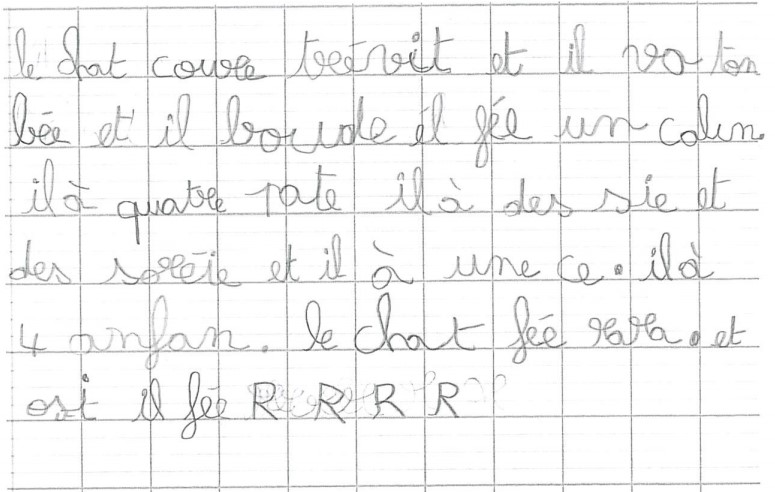 le chat coure treroit et il va ton
bée et il boude il fée un calin
il à quatre pate il à des sie et
des soreie et il à une ce. il à
4 anfan. le chat fée rara. et
osi il fée R R R R